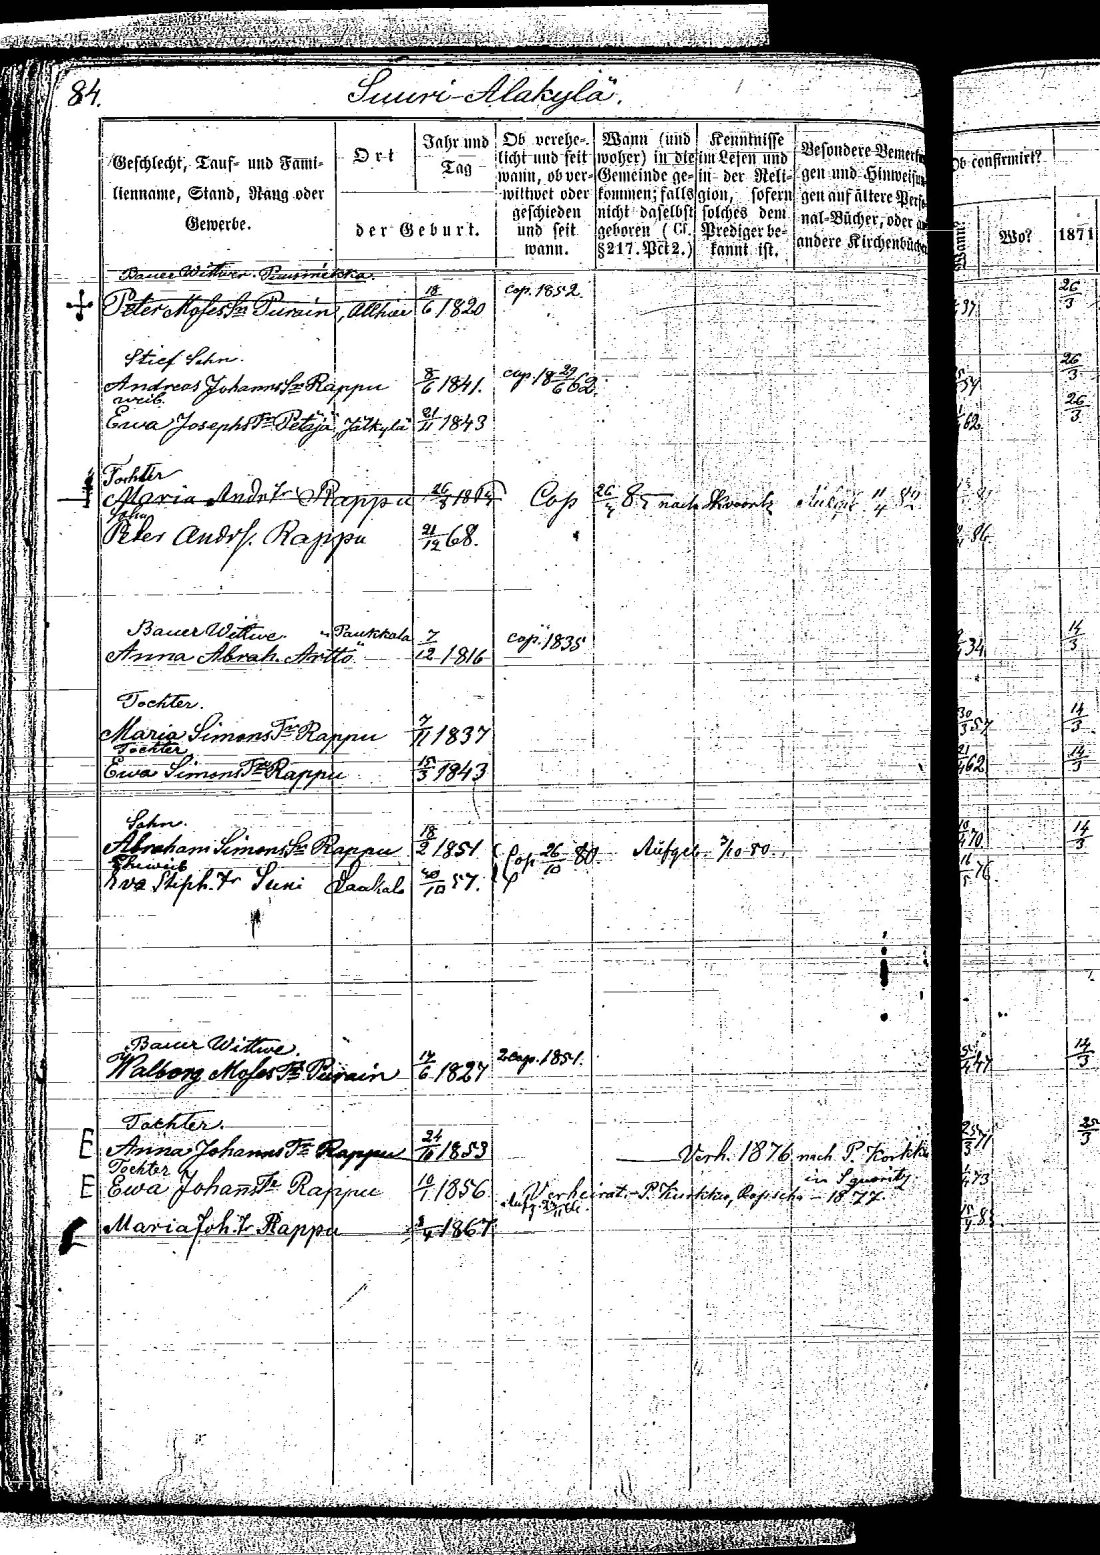 84.
Suuri-Alakylä.
Geschlecht, Tauf- und Fami-
lienname, Stand, Rang oder
Gewerbe.
Ort
Jahr und
Tag
der Geburt.
Ob verehe-
licht und seit
wann, ob ver-
wittwet oder
geschieden
und seit
wann.
Wann (und
woher) in die
Gemeinde ge-
kommen; falls
nicht daselbst
geboren (Cf.
§ 217. Pct 2.)
Kenntnisse
im Lesen und
in der Reli-
gion, sofern
solches dem
Prediger be-
kannt ist.
Besondere Bemerkun
gen und Hinweisun
gen auf ältere Perso
nal-Bücher, oder au
andere Kirchenbüche
Ob confirmirt?
Wann?
Wo?
1871
Bauer Wittwer.
Peter Moses Sn Purain, Allhier 18/6 1820 cop. 1852. 37 26/3
Stief Sohn.
Andreas Johanns Sn Rappu 8/6 1841. cop. 18 29/6 62. 26/3
weib.
Ewa Josephs Tr Petäjä, Jälkylä 21/11 1843 62 26/3
Tochter
Maria Andr. Tr Rappu Cop 26/4 nach Skworitz
Sohn
Peter Andr S. Rappu 21/12 68. 86
Bauer Wittwe Paukkala
Anna Abrah. Arttö 7/12 1816 cop. 1835 34 14/3
Tochter.
Maria Simons Tr Rappu 7/11 1837 30/3 57 14/3
Tochter
Ewa Simons Tr Rappu 15/3 1843 21/4 62 14/3
Sohn.
Abraham Simons Sn Rappu 18/2 1851 Cop 26/10 80. Aufgeb. 3/10 80. 70 14/3
Eheweib
Eva Steph. Tr Suni 57. 76
Bauer Wittwe
Walborg Moses Tr Purain 14/6 1827 2 cop. 1851. 47 14/3
Tochter.
E Anna Johanns Tr Rappu 24/10 1853 Verh. 1876 nach P. Korkka 25/3 71 25/3
in Squoritz
Tochter
E Ewa Johans Tr Rappu 10/1 1856. Verheirat. P. Kurkko, Ropscha - 1877. 73
Maria Joh. Tr Rappu 1867 15/4